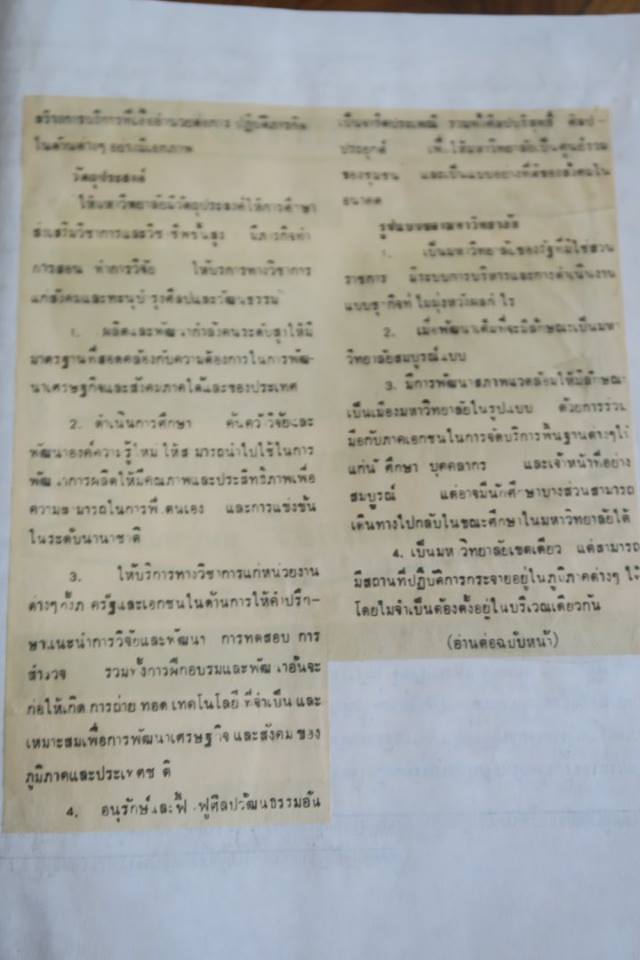 สร้างการบริการที่เอื้ออำนวยต่อการ ปฏิบัติภารกิจ
ในด้านต่างๆ อย่างมีเอกภาพ
วัตถุประสงค์
ให้มหาวิทยาลัยมีวัตถุประสงค์ให้การศึกษา
ส่งเสริมวิชาการและวิชาชีพชั้นสูง มีภารกิจทำ
การสอน ทำการวิจัย ให้บริการทางวิชาการ
แก่สังคมและทะนุบำรุงศิลปและวัฒนธรรม
1. ผลิตและพัฒนากำลังคนระดับสูงให้มี
มาตรฐานที่สอดคล้องกับความต้องการในการพัฒ-
นาเศรษฐกิจและสังคมภาคใต้และของประเทศ
2. ดำเนินการศึกษา ค้นคว้าวิจัยและ
พัฒนาองค์ความรู้ใหม่ ให้สามารถนำไปใช้ในการ
พัฒนาการผลิตให้มีคุณภาพและประสิทธิภาพเพื่อ
ความสามารถในการพึ่งตนเอง และการแข่งขัน
ในระดับนานาชาติ
3. ให้บริการทางวิชาการแก่หน่วยงาน
ต่างๆทั้งภาครัฐและเอกชนในด้านการให้คำปรึก-
ษาแนะนำการวิจัยและพัฒนา การทดสอบ การ
สำรวจ รวมทั้งการฝึกอบรมและพัฒนาอันจะ
ก่อให้เกิด การถ่าย ทอด เทคโนโลยี ที่จำเป็น และ
เหมาะสมเพื่อการพัฒนาเศรษฐกิจ และสังคม ของ
ภูมิภาคและประเทศชาติ
4. อนุรักษ์และฟื้นฟูศิลปวัฒนธรรมอัน
เป็นจารีตประเพณี รวมทั้งศิลปบริสุทธิ์ ศิลป-
ประยุกต์ เพื่อให้มหาวิทยาลัยเป็นศูนย์รวม
ของชุมชน และเป็นแบบอย่างที่ดีของสังคมใน
อนาคต
รูปแบบของมหาวิทยาลัย
1. เป็นมหาวิทยาลัยของรัฐที่มิใช่ส่วน
ราชการ มีระบบการบริหารและการดำเนินงาน
แบบธุรกิจที่ไม่มุ่งหวังผลกำไร
2. เมื่อพัฒนาเต็มที่จะมีลักษณะเป็นมหา
วิทยาลัยสมบูรณ์แบบ
3. มีการพัฒนาสภาพแวดล้อมให้มีลักษณะ
เป็นเมืองมหาวิทยาลัยในรูปแบบ ด้วยการร่วม
มือกับภาคเอกชนในการจัดบริการพื้นฐานต่างๆให้
แก่นักศึกษา บุคคลากร และเจ้าหน้าที่อย่าง
สมบูรณ์ แต่อาจมีนักศึกษาบางส่วนสามารถ
เดินทางไปกลับในขณะศึกษาในมหาวิทยาลัยได้
4. เป็นมหาวิทยาลัยเขตเดียว แต่สามารถ
มีสถานที่ปฏิบัติการกระจายอยู่ในภูมิภาคต่างๆ ได้
โดยไม่จำเป็นต้องตั้งอยู่ในบริเวณเดียวกัน
(อ่านต่อฉบับหน้า)